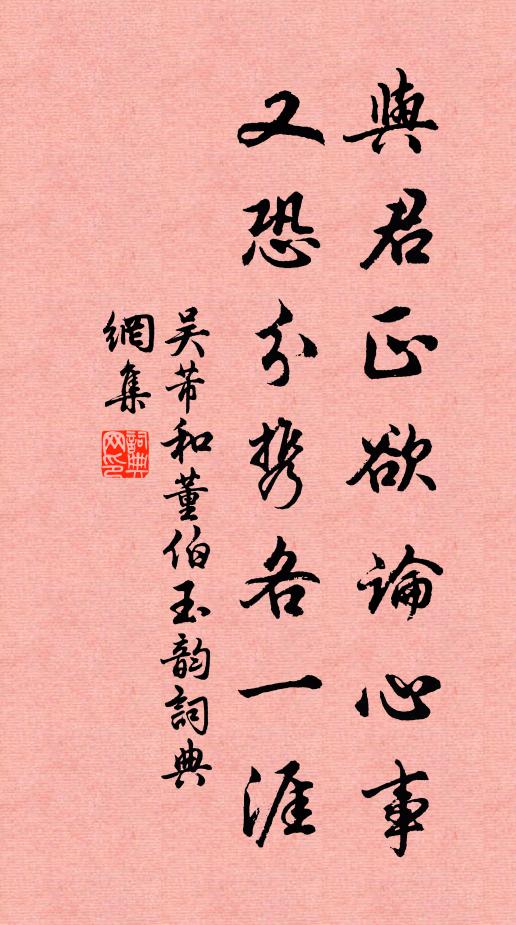 與君正欲論心事
又恐分携各一涯
吳芾和董伯玉韵詞典
網集
詞典
网印